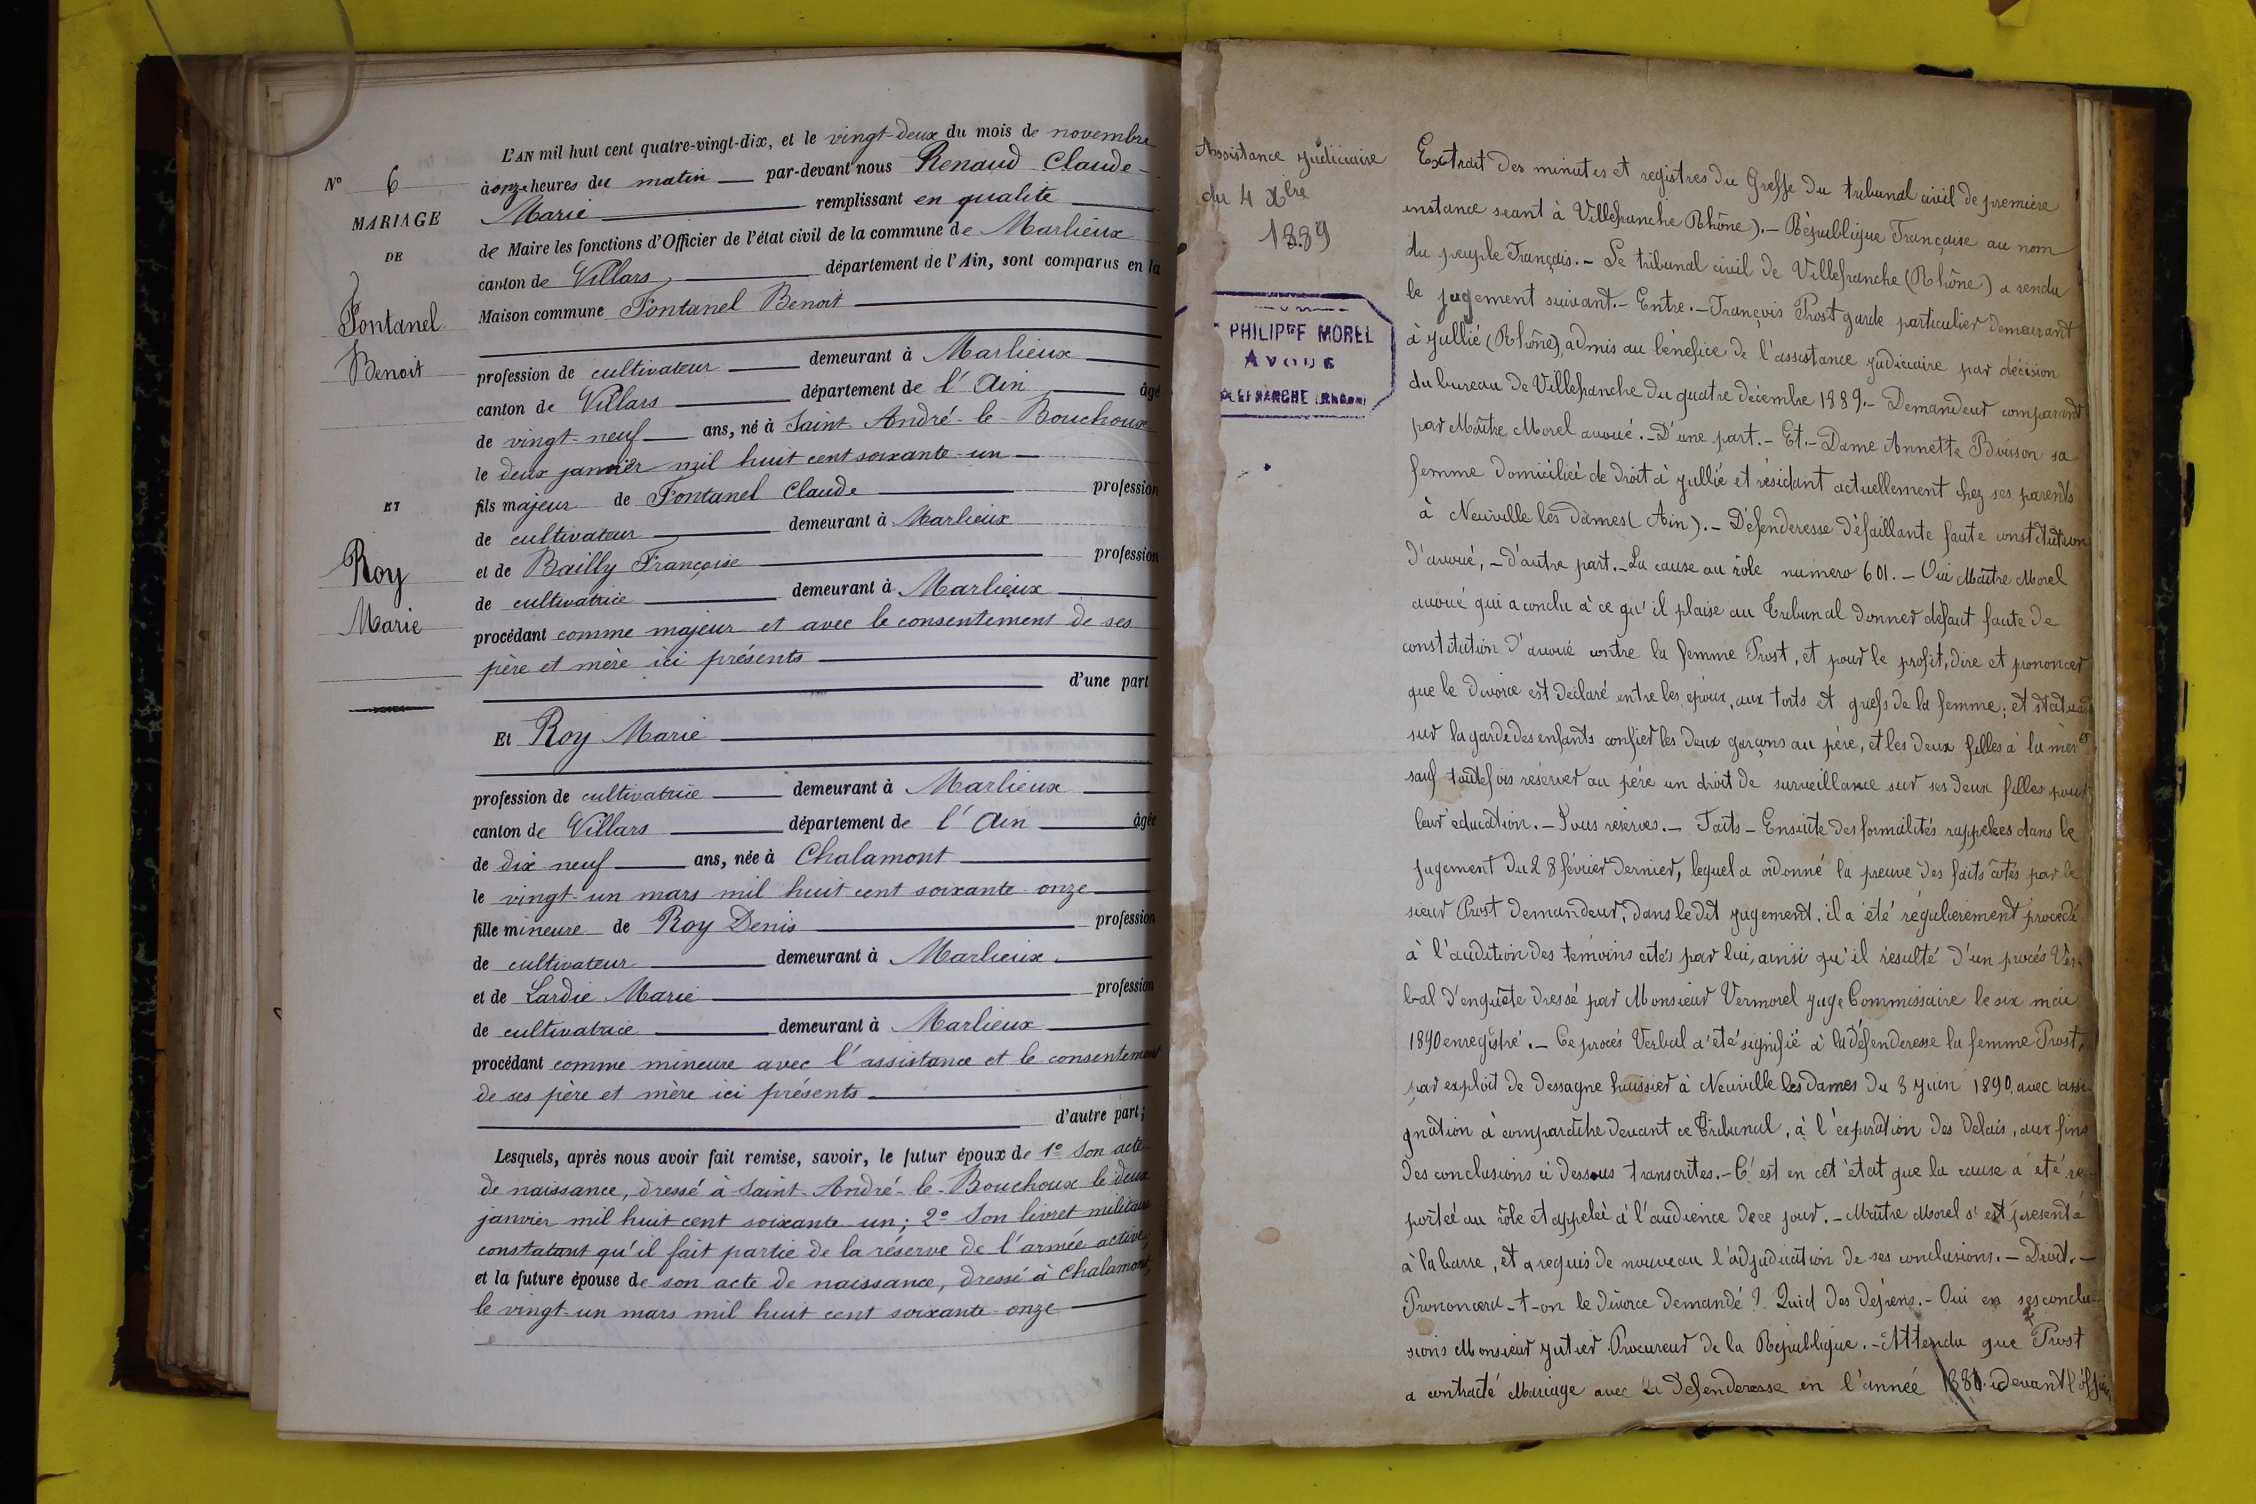 L'AN mil huit cent quatre-vingt-dix, et le vingt-deux du mois de novembre
à onze heures du matin par-devant nous Renaud Claude
Marie remplissant en qualité
de Maire les fonctions d'Officier de l'état civil de la commune de Marlieux
canton de Villars département de l'Ain, sont comparus en la
Maison commune Fontanel Benoit
profession de cultivateur demeurant à Marlieux
canton de Villars département de l'Ain âgé
de vingt-neuf ans, né à Saint-André-le-Bouchoux
le deux janvier mil huit cent soixante-un
fils majeur de Fontanel Claude profession
de cultivateur demeurant à Marlieux
et de Bailly Françoise profession
de cultivatrice demeurant à Marlieux
procédant comme majeur et avec le consentement de ses
père et mère ici présents
d'une part
Et Roy Marie
profession de cultivatrice demeurant à Marlieux
canton de Villars département de l'Ain âgée
de dix-neuf ans, née à Chalamont
le vingt-un mars mil huit cent soixante-onze
fille mineure de Roy Denis profession
de cultivateur demeurant à Marlieux
et de Lardie Marie profession
de cultivatrice demeurant à Marlieux
procédant comme mineure avec l'assistance et le consentement
de ses père et mère ici présents
d'autre part;
Lesquels, après nous avoir fait remise, savoir, le futur époux de 1° Son acte
de naissance, dressé à Saint-André-le-Bouchoux le deux
janvier mil huit cent soixante-un; 2° Son livret militaire
constatant qu'il fait partie de la réserve de l'armée active;
et la future épouse de son acte de naissance, dressé à Chalamont,
le vingt-un mars mil huit cent soixante-onze
N° 6
MARIAGE
DE
Fontanel
Benoit
ET
Roy
Marie
Assistance judiciaire
du 4 Xbre
1889
PHILIPPE MOREL
AVOUÉ
VILLEFRANCHE (RHONE)
Extrait des minutes et registres du Greffe du tribunal civil de première
instance seant à Villefranche Rhône).- République Française au nom
du peuple Français.- Le tribunal civil de Villefranche (Rhône) a rendu
le jugement suivant.- Entre.- François Prost garde particulier demeurant
à Jullié (Rhône), admis au bénéfice de l'assistance judiciaire par décision
du bureau de Villefranche du quatre décembre 1889.- Demandeur comparant
par Maître Morel avoué.- D'une part.- Et.- Dame Annette Buisson sa
femme domiciliée de droit à Jullié et résidant actuellement chez ses parents
à Neuville les Dames (Ain).- Défenderesse défaillante faute constitution
d'avoué, - d'autre part.- La cause au rôle numéro 601.- Oui Maître Morel
avoué qui a conclu à ce qu'il plaise au Tribunal donner défaut faute de
constitution d'avoué contre la femme Prost, et pour le profit, dire et prononcer
que le divorce est déclaré entre les époux, aux torts et griefs de la femme; et statuant
sur la garde des enfants confier les deux garçons au père, et les deux filles à la mère
sauf toutefois réserver au père un droit de surveillance sur ses deux filles pour
leur éducation.- Sous réserves.- Faits - Ensuite des formalités rappelées dans le
jugement du 28 février dernier, lequel a ordonné la preuve des faits cotés par le
sieur Prost demandeur, dans le dit jugement, il a été régulièrement procédé
à l'audition des témoins cités par lui, ainsi qu'il résulte d'un procès Ver-
bal d'enquête dressé par Monsieur Vermorel juge Commissaire le six mai
1890 enregistré.- Ce procès Verbal a été signifié à la défenderesse la femme Prost,
par exploit de Dessagne huissier à Neuville les Dames du 3 juin 1890 avec assi-
gnation à comparaître devant ce Tribunal, à l'expiration des délais, aux fins
des conclusions ci dessous transcrites.- C'est en cet état que la cause a été re-
portée au rôle et appelée à l'audience de ce jour.- Maître Morel s'est présenté
à la barre, et a requis de nouveau l'adjudication de ses conclusions.- Droit.-
Prononcera-t-on le divorce demandé? Quid des dépens.- Oui en ses conclu-
sions Monsieur Jutier Procureur de la République.- Attendu que Prost
a contracté Mariage avec la défenderesse en l'année devant l'offi